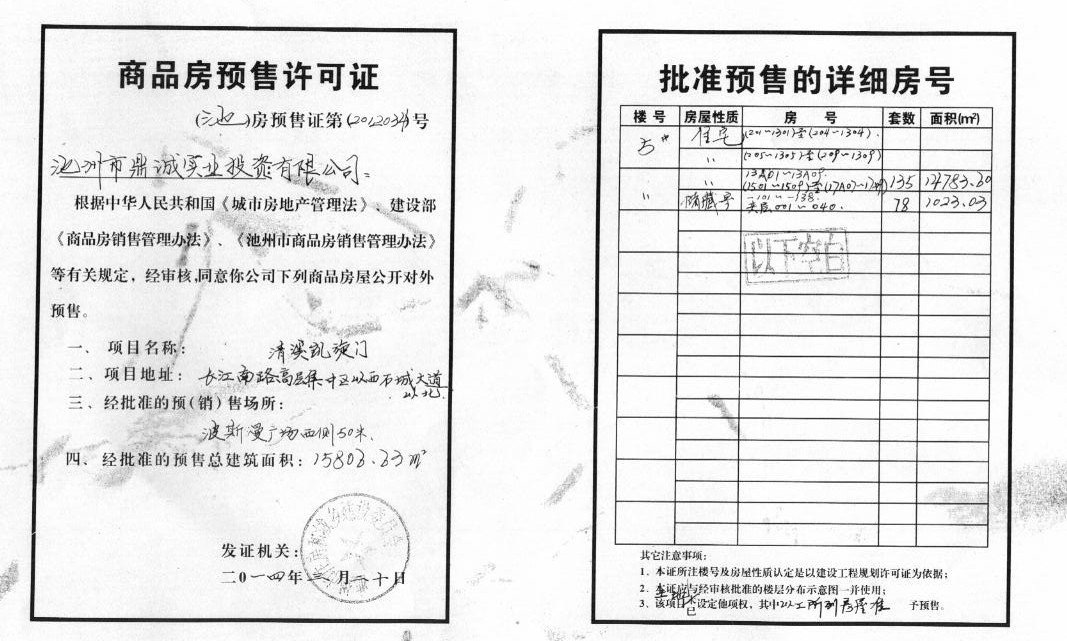 商品房预售许可证
(池)房预售证第(2012034)号
池州市鼎诚实业投资有限公司:
根据中华人民共和国《城市房地产管理法》、建设部
《商品房销售管理办法》、《池州市商品房销售管理办法》
等有关规定，经审核,同意你公司下列商品房屋公开对外
预售。
一、项目名称: 清溪凯旋门
二、项目地址: 长江南路高层集中区以西石城大道
以北
三、经批准的预(销)售场所:
波斯曼广场西侧50米.
四、经批准的预售总建筑面积: 15803.33m²
发证机关:
二0一四年三月二十日
批准预售的详细房号
楼号 房屋性质 房号 套数 面积(m²)
5# 住宅 (201~1301)至(204~1304).
〃 (205~1305)至(209~1309)
〃 13A01~13A09.
(1501~1509)至(17A07~17 135 14783.30
〃 储藏号 -101~-138. 78 1023.03
夹层001~040.
以下空白
其它注意事项:
1、本证所注楼号及房屋性质认定是以建设工程规划许可证为依据;
2、本证应与经审核批准的楼层分布示意图一并使用;
3、该项目 设定他项权，其中以上所列房屋准 予预售。
已